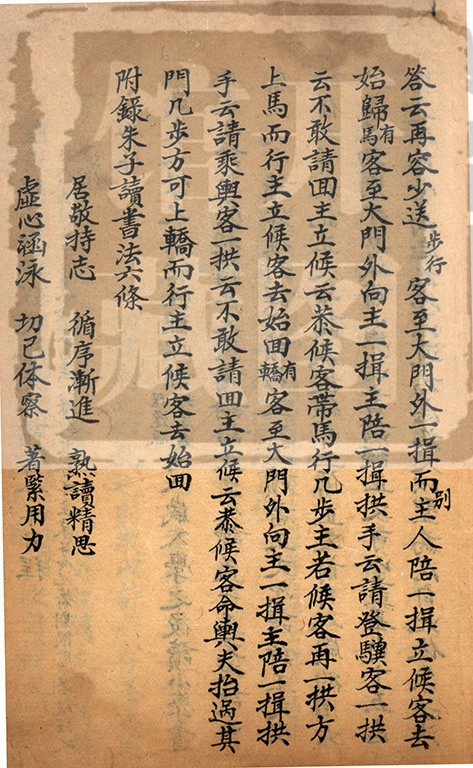 答云再容少送步行客至大門外一揖而別主人陪一揖立候客去
始歸有馬客至大門外向主一揖主陪一揖拱手云請登驥客一拱
云不敢請囬主立候云恭候客帶馬行几步主若候客再一拱方
上馬而行主立候客去始囬有轎客至大門外向主一揖主陪一揖拱
手云請乘輿客一拱云不敢請囬主立候云恭候客命輿夫抬過其
門几步方可上轎而行主立候客去始囬
附錄朱子讀書法六條
居敬持志 循序漸進 熟讀精思
虛心涵泳 切己体察 着緊用力